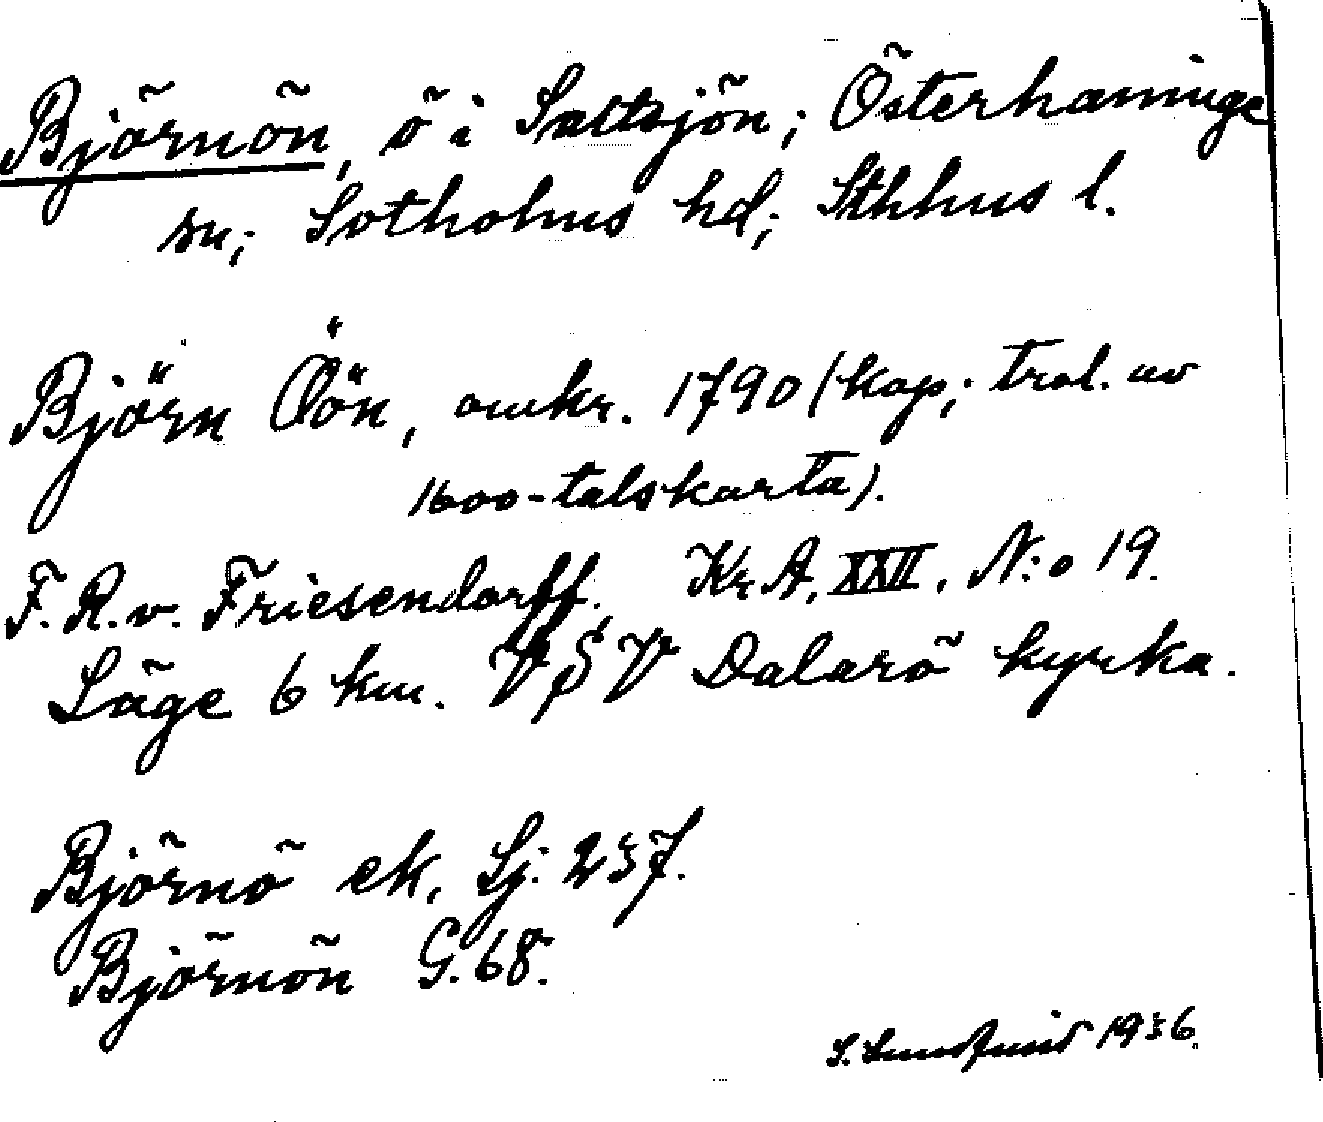 Björnön, ö i Saltsjön; Österhaninge
sn; Sotholms hd; Sthlms l.
Björn Öön, omkr. 1790 (kop; trol. av
1600-talskarta).
F. R. v. Friesendorff. Kr. A. XXII. N:o 19.
Läge 6 km. V S V Dalarö kyrka.
Björnö ek. Sj. 257.
Björnön G. 68.
S. 1936.